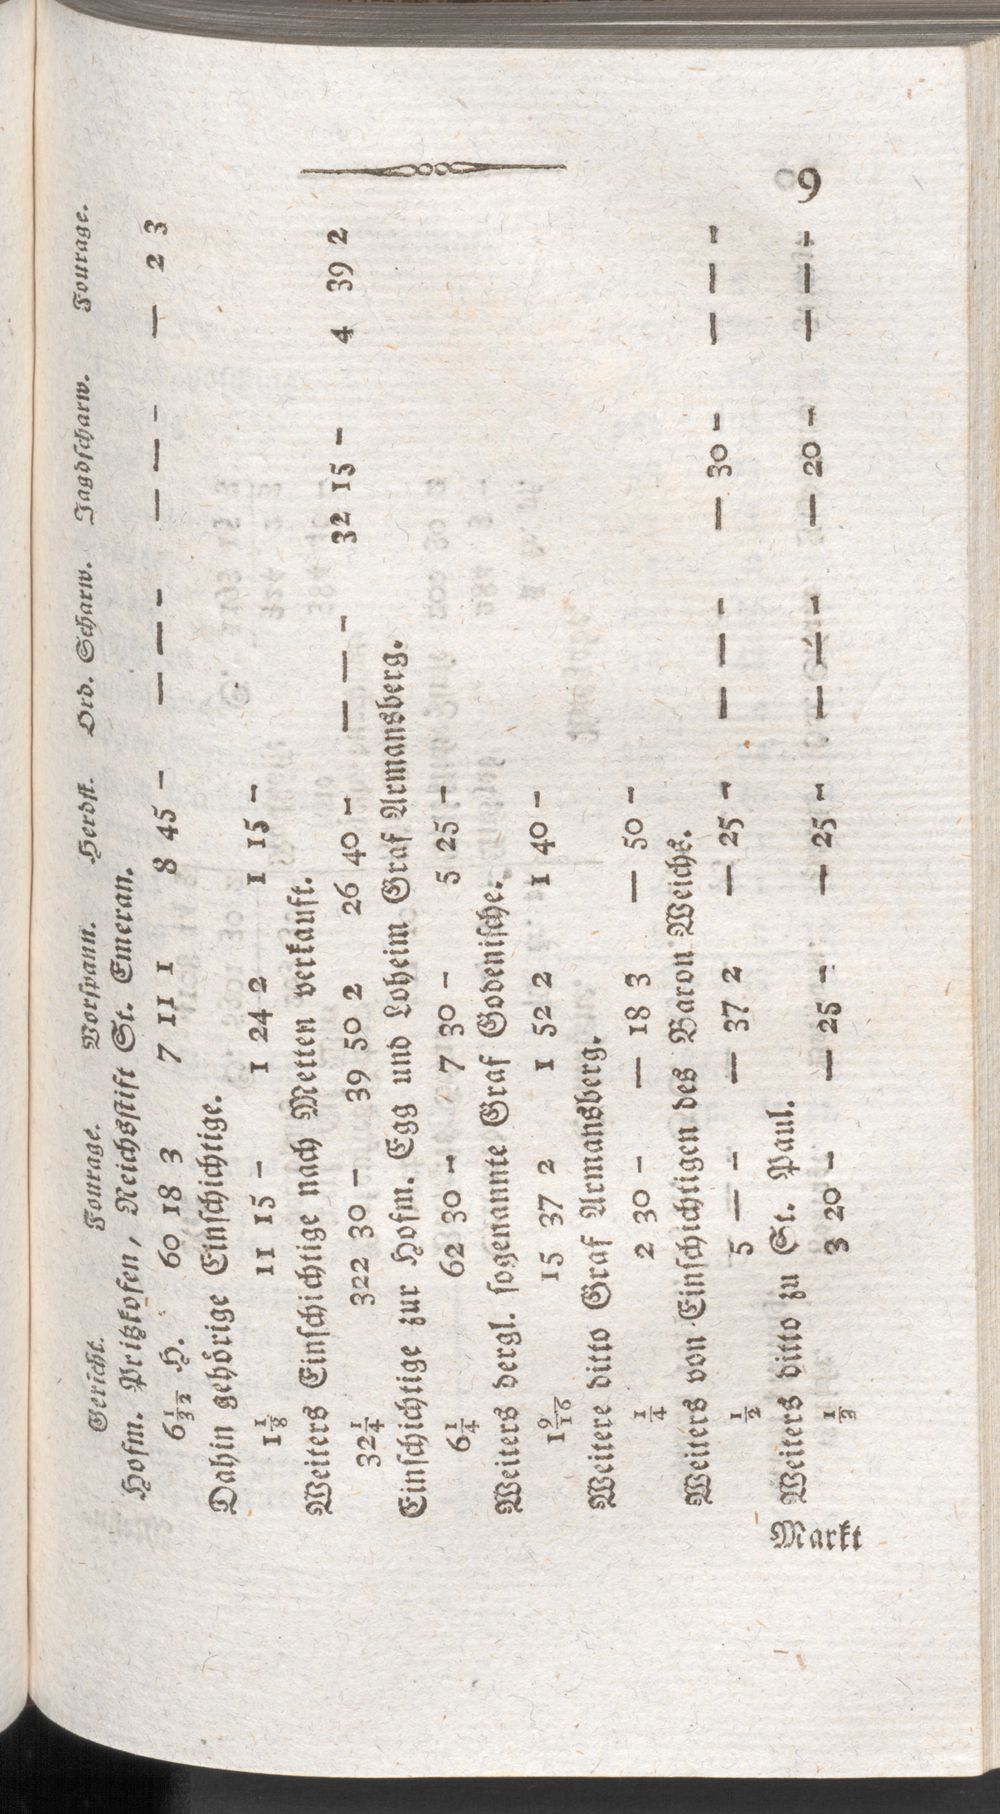 9
Gericht. Fourage. Vorspann. Herdst. Ord. Scharw. Jagdscharw. Fourage.
Hofm. Pritzkofen, Reichsstift St. Emeran.
6 1/32 H. 60 18 3 7 11 1 8 45 — — — — — — — — 2 3
Dahin gehörige Einschichtige.
1 1/8 11 15 — 1 24 2 1 15 —
Weiters Einschichtige nach Metten verkauft.
32 1/4 322 30 — 39 50 2 26 40 — — — — 32 15 — 4 39 2
Einschichtige zur Hofm. Egg und Loheim Graf Armansberg.
6 1/4 62 30 — 7 30 — 5 25 —
Weiters dergl. sogenannte Graf Godenische.
1 9/16 15 37 2 1 52 2 1 40 —
Weitere ditto Graf Armansberg.
1/4 2 30 — — 18 3 — 50 —
Weiters von Einschichtigen des Baron Weichs.
1/2 5 — — — 37 2 — 25 — — — — — 30 — — — —
Weiters ditto zu St. Paul.
1/3 3 20 — — 25 — — 25 — — — — — 20 — — — —
Markt